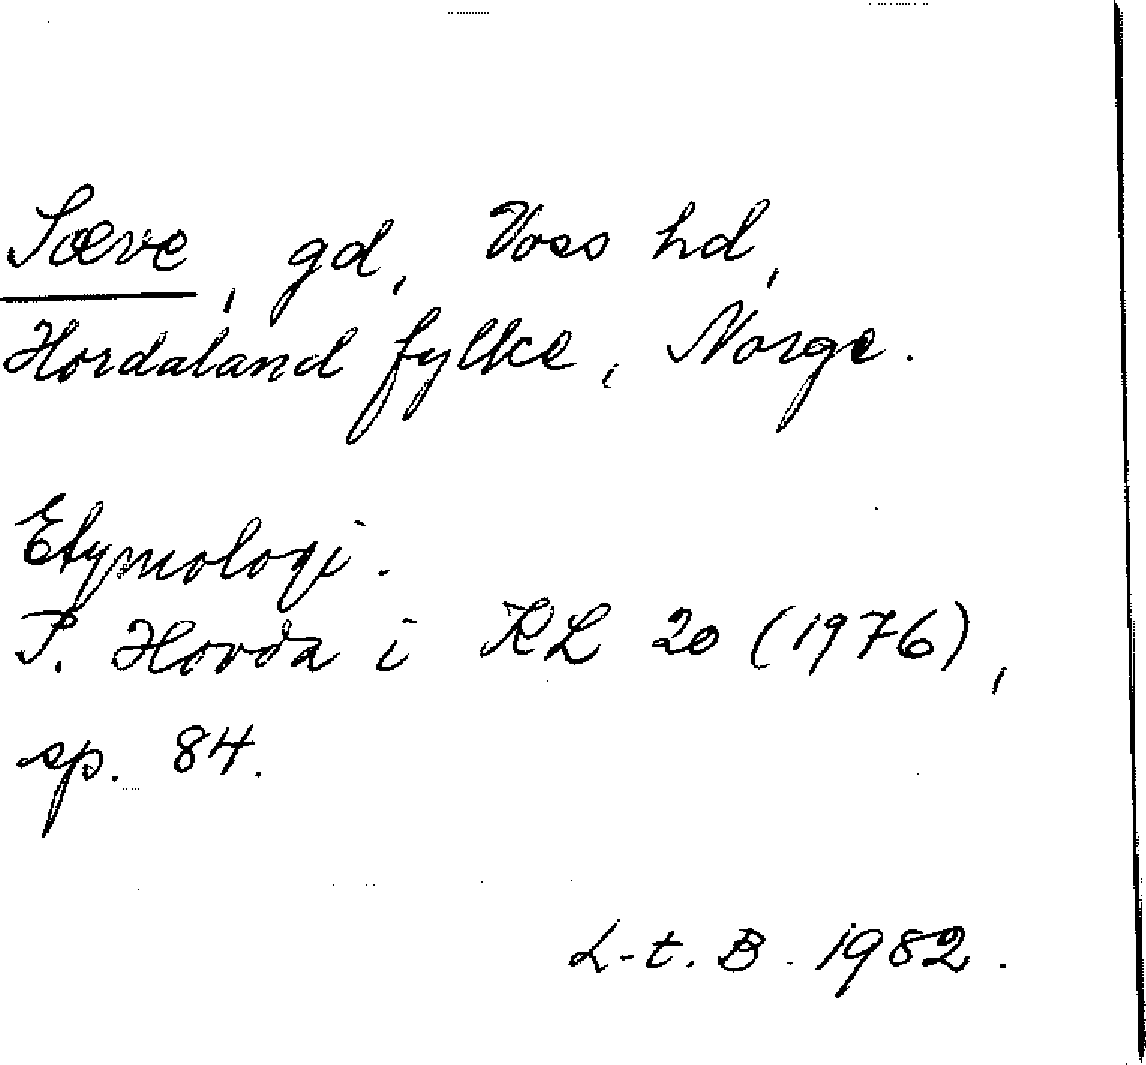 Sæve, gd, Voss hd,
Hordaland fylke, Norge.
Etymologi.
P. Hovda i KL 20 (1976),
sp. 84.
L-t. B. 1982.